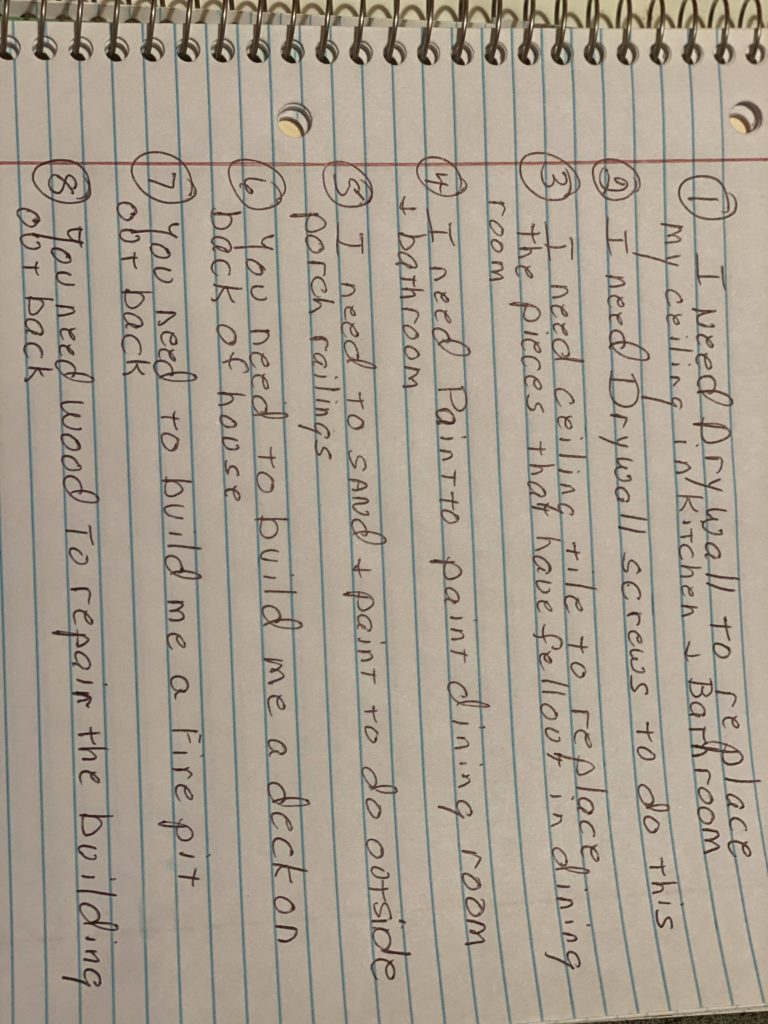 ① I Need Drywall to replace
my ceiling in kitchen + Bathroom
② I need Drywall screws to do this
③ I need ceiling tile to replace
the pieces that have fell out in dining
room
④ I need Paint to paint dining room
+ bathroom
⑤ I need to SAND + paint to do outside
porch railings
⑥ You need to build me a deck on
back of house
⑦ You need to build me a fire pit
out back
⑧ You need wood To repair the building
out back